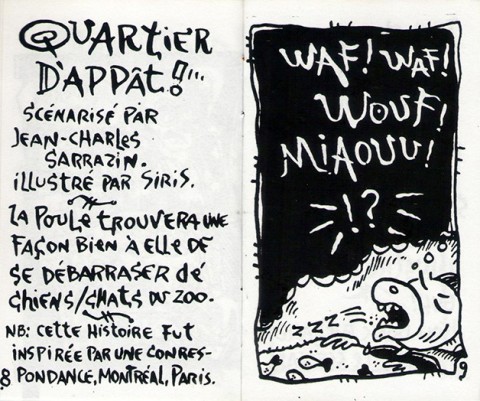 QUARTIER
D'APPÂT!...
SCÉNARISÉ PAR
JEAN-CHARLES
SARRAZIN.
ILLUSTRÉ PAR SIRIS.
LA POULE TROUVERA UNE
FAÇON BIEN À ELLE DE
SE DÉBARRASER DE
CHIENS/CHATS DU ZOO.
NB: CETTE HISTOIRE FUT
INSPIRÉE PAR UNE CORRES-
PONDANCE, MONTRÉAL, PARIS.
8
WAF! WAF!
WOUF!
MIAOUU!
!?
ZZZZ
9